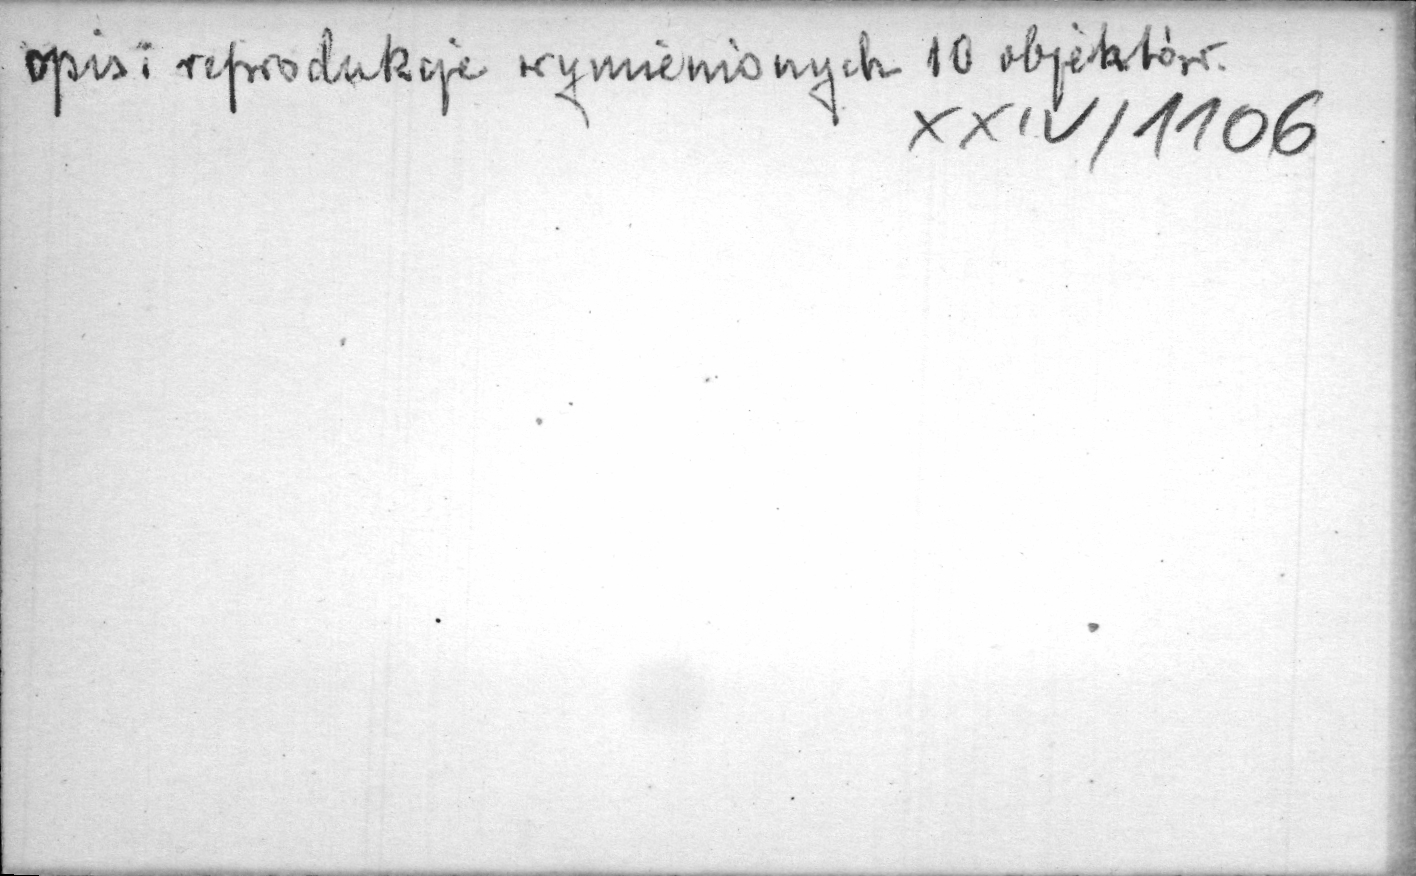 opis i reprodukcje wymienionych 10 objektów.
XXIV/1106